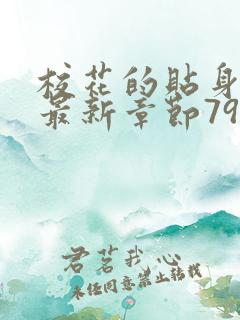 校花的贴身
最新章节79
君茗我心
未经同意禁止转载